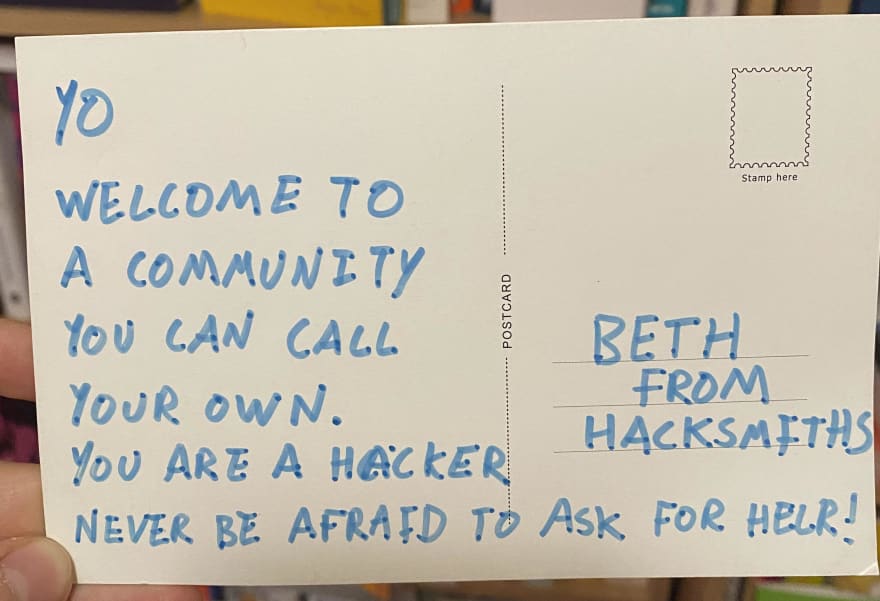 YO
WELCOME TO
A COMMUNITY
YOU CAN CALL
YOUR OWN.
YOU ARE A HACKER
NEVER BE AFRAID TO ASK FOR HELP!
POSTCARD
Stamp here
BETH
FROM
HACKSMITHS